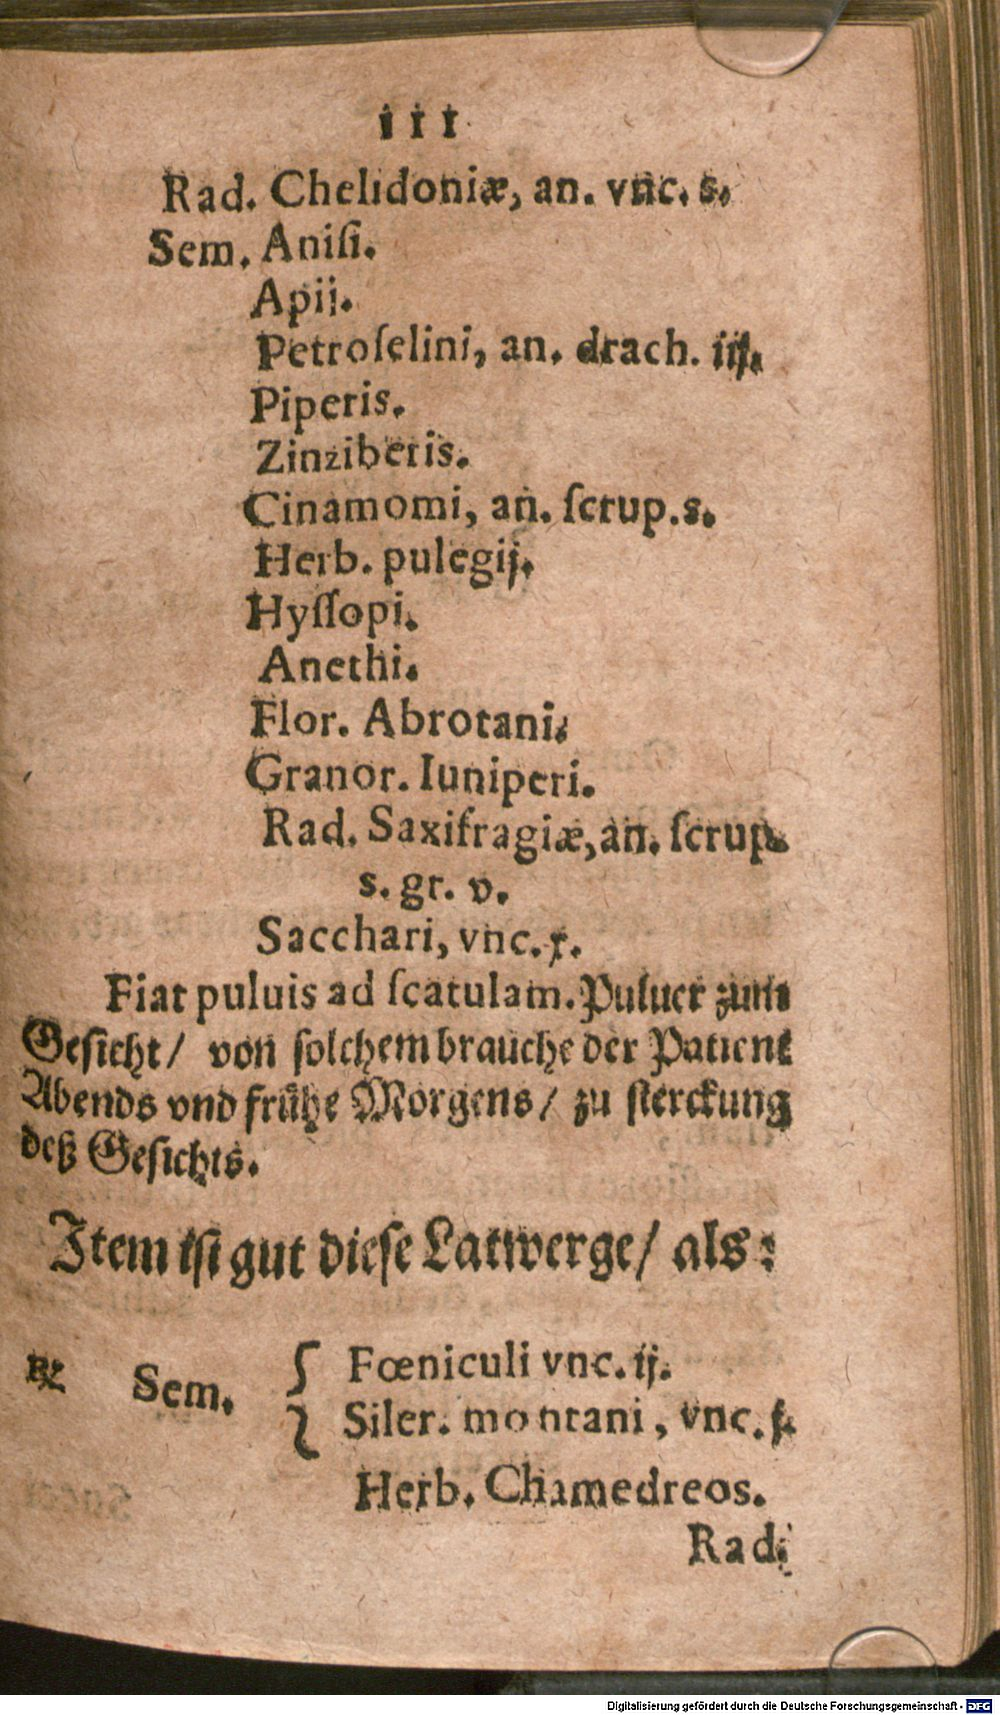 111
Rad. Chelidoniæ, an. vnc. s.
Sem. Aniſi.
Apij.
Petroſelini, an. drach. iij.
Piperis.
Zinziberis.
Cinamomi, an. ſcrup. s.
Herb. pulegij.
Hyſſopi.
Anethi.
Flor. Abrotani.
Granor. Iuniperi.
Rad. Saxifragiæ, an. ſcrup.
s. gr. v.
Sacchari, vnc. x.
Fiat puluis ad ſcatulam. Puluer zum
Geſicht / von ſolchem brauche der Patient
Abends vnd frühe Morgens / zu ſterckung
deß Geſichts.
Item iſt gut dieſe Latwerge / als:
℞ Sem. { Fœniculi vnc. ij.
Siler. montani, vnc. j.
Herb. Chamedreos.
Rad.
Digitalisierung gefördert durch die Deutsche Forschungsgemeinschaft - DFG